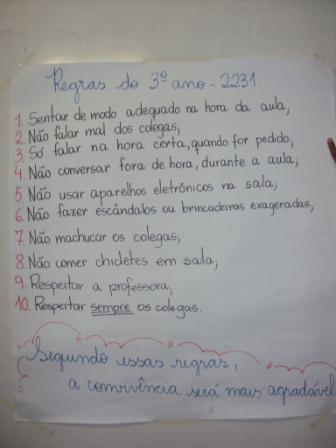 Regras do 3º ano - 2231.
1. Sentar de modo adequado na hora da aula;
2. Não falar mal dos colegas;
3. Só falar na hora certa, quando for pedido;
4. Não conversar fora de hora, durante a aula;
5. Não usar aparelhos eletrônicos na sala;
6. Não fazer escândalos ou brincadeiras exageradas;
7. Não machucar os colegas;
8. Não comer chicletes em sala;
9. Respeitar a professora;
10. Respeitar sempre os colegas.
Seguindo essas regras,
a convivência será mais agradável